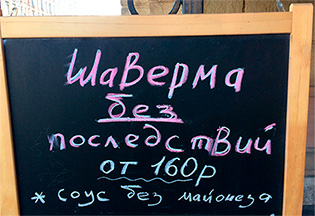 Шаверма
без
последствий
от 160р
* соус без майонеза